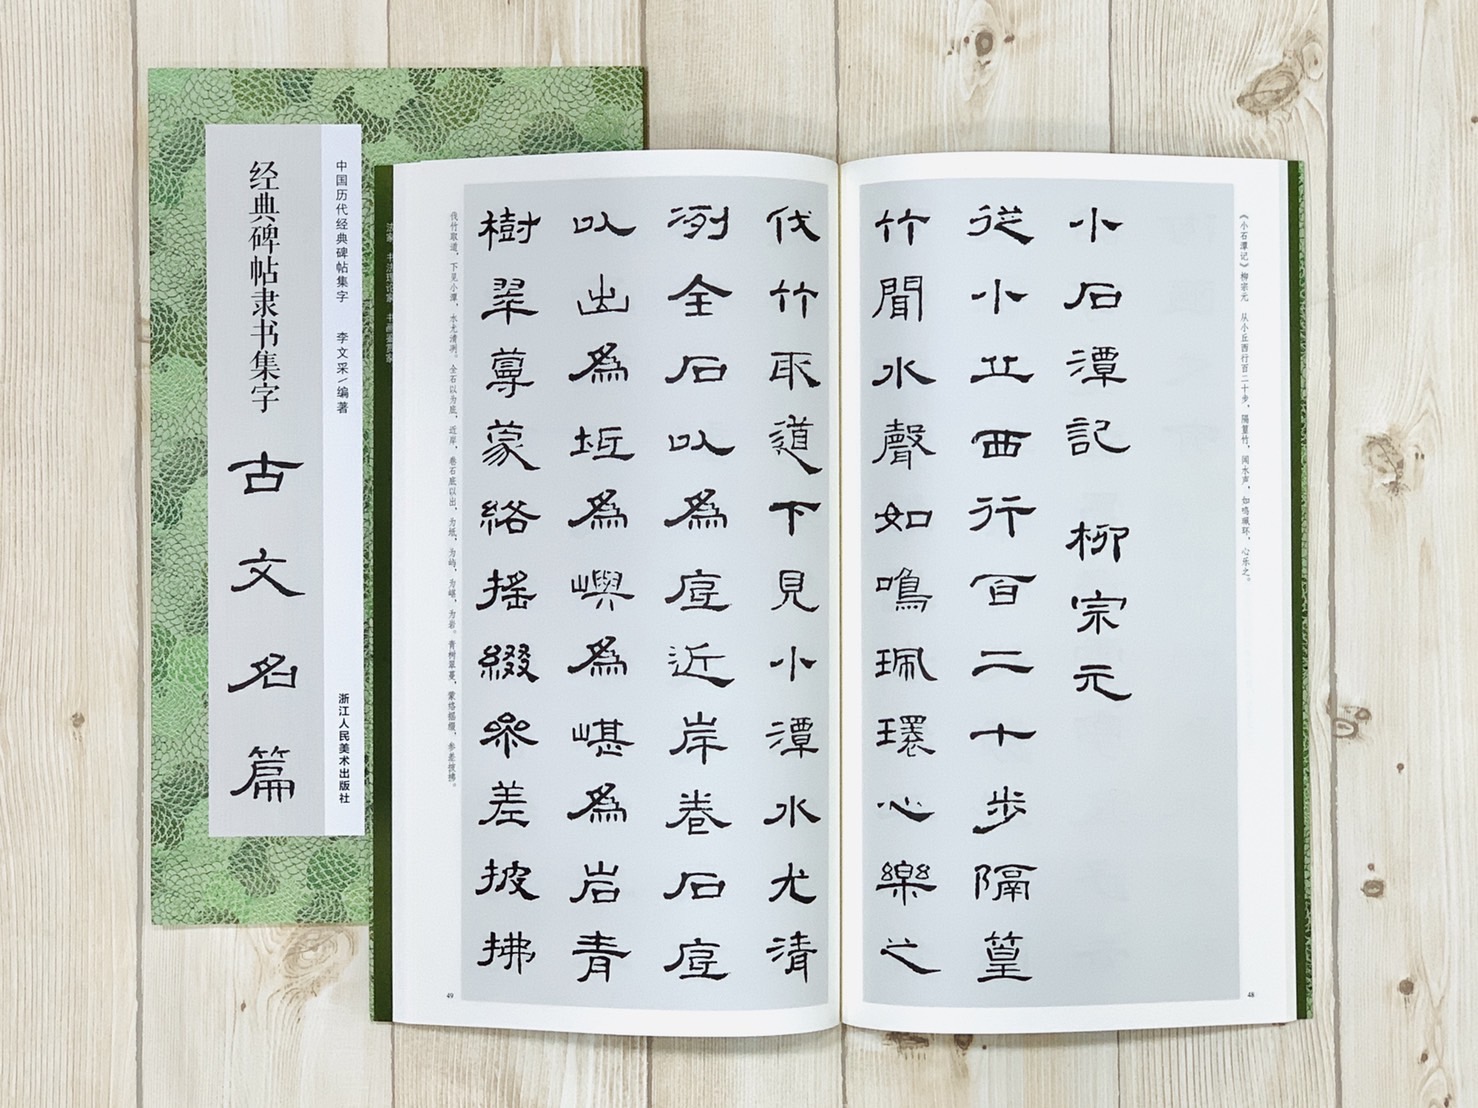 中国历代经典碑帖集字 李文采/编著 浙江人民美术出版社
经典碑帖隶书集字 古文名篇
《小石潭记》柳宗元 从小丘西行百二十步，隔篁竹，闻水声，如鸣珮环，心乐之。
小石潭記 柳宗元
從小丘西行百二十步隔篁
竹聞水聲如鳴珮環心樂之
48
伐竹取道下見小潭水尤清
冽全石以為底近岸卷石底
以出為坻為嶼為嵁為岩青
樹翠蔓蒙絡搖綴參差披拂
伐竹取道，下见小潭，水尤清冽。全石以为底，近岸，卷石底以出，为坻，为屿，为嵁，为岩。青树翠蔓，蒙络摇缀，参差披拂。
49
法家 书法理论家 书画鉴赏家